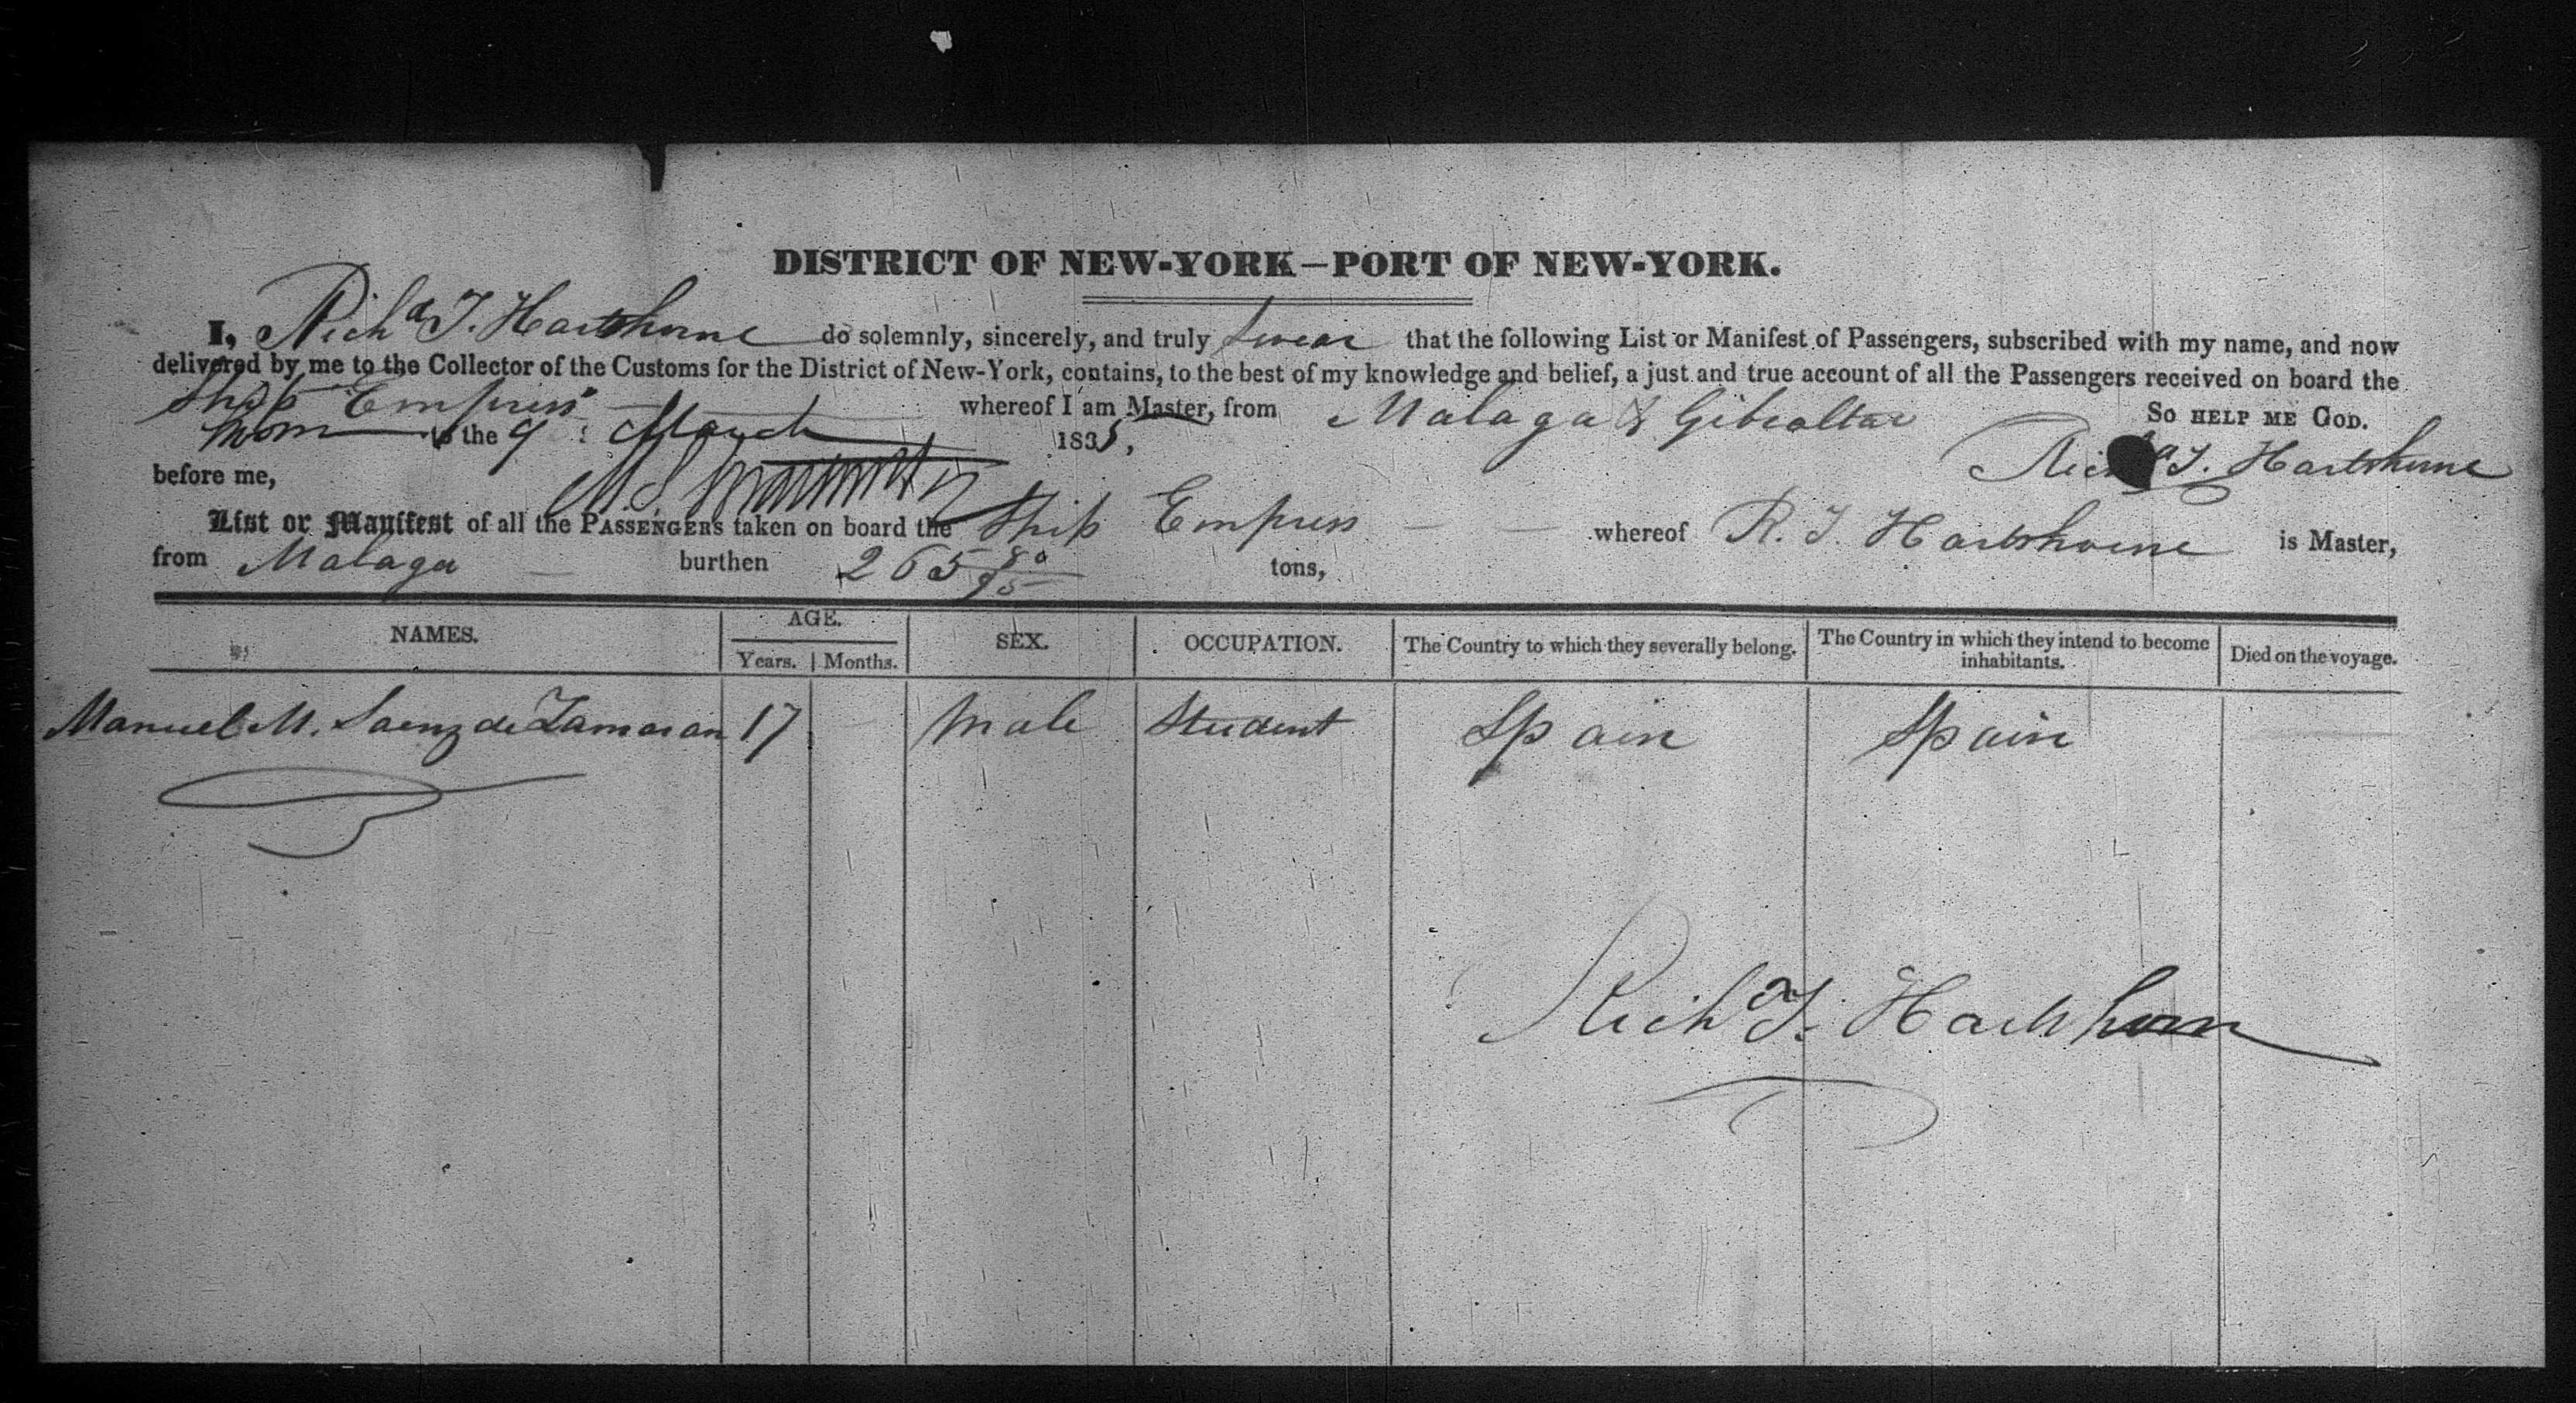 DISTRICT OF NEW-YORK—PORT OF NEW-YORK.
I, Richd T. Hartshorne do solemnly, sincerely, and truly swear that the following List or Manifest of Passengers, subscribed with my name, and now
delivered by me to the Collector of the Customs for the District of New-York, contains, to the best of my knowledge and belief, a just and true account of all the Passengers received on board the
Ship Empress whereof I am Master, from Malaga & Gibraltar So HELP ME GOD.
Sworn to the 9 March 1835,
Richd T. Hartshorne
before me,
List or Manifest of all the PASSENGERS taken on board the Ship Empress — — whereof R. T. Hartshorne is Master,
from Malaga — burthen 265 80/95 tons,
NAMES. AGE. SEX. OCCUPATION. The Country to which they severally belong. The Country in which they intend to become inhabitants. Died on the voyage.
Years. Months.
Manuel M. Saenz de Zamaran 17 Male Student Spain Spain
Richd T. Hartshorn